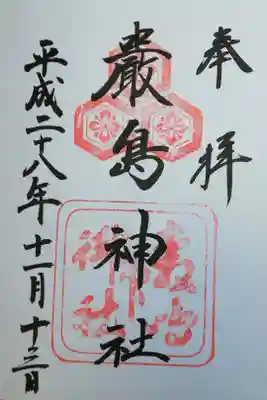 奉拝
嚴島神社
平成二十八年十一月十三日